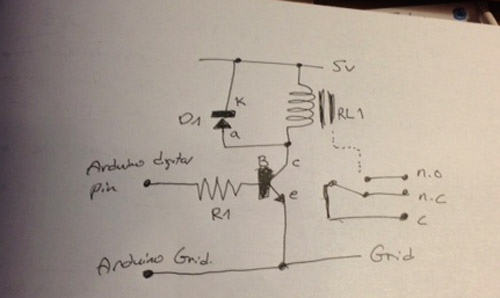 5v
K
D1
RL1
a
B
c
Arduino digital
pin
n.o
n.c
e
R1
c
Arduino Grid.
Grid